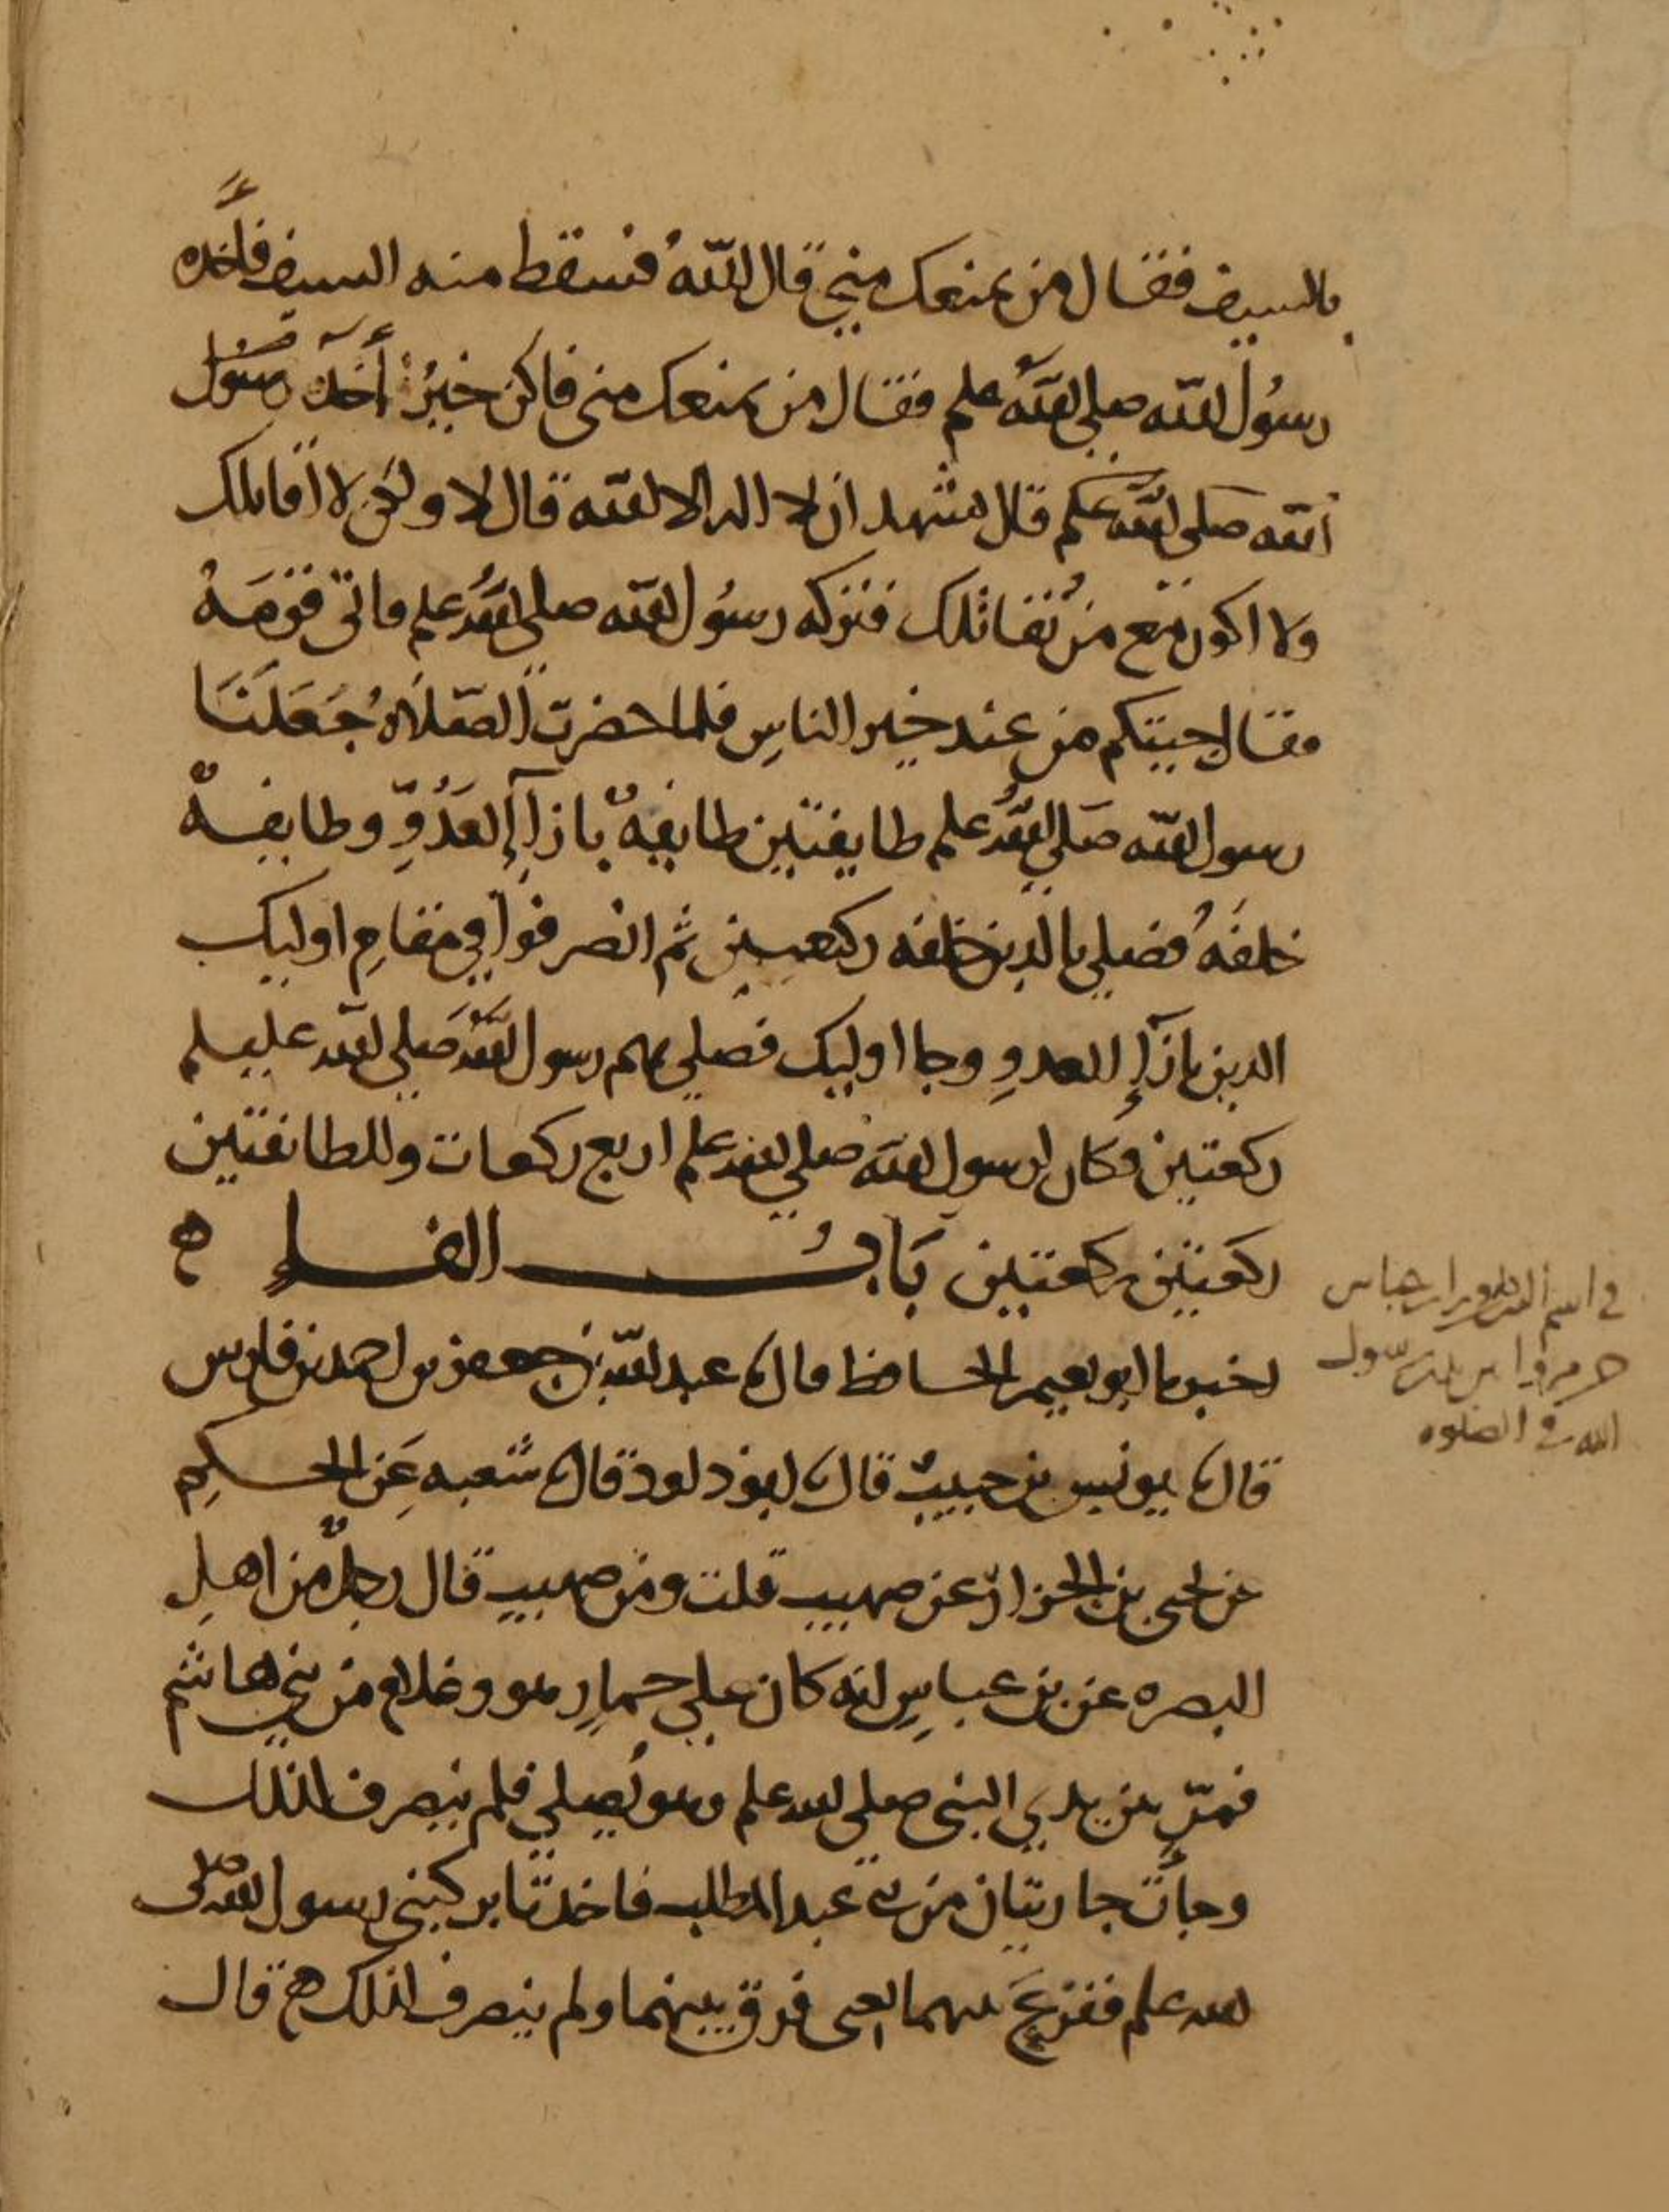 بالسيف فقال من يمنعك مني قال اللهُ فسقط منه السيف فأخذه
رسُول الله صلى الله علم فقال من يمنعك مني فاكن خيرُ أخذ رسُول
الله صلى الله علم قال تشهد ان لا اله الا الله قال لا ولكن لا اقاتلك
ولا اكون مع من يُقاتلك فتركه رسُول الله صلى الله علم فاتى قومَهُ
فقال جيتكم من عند خير الناسِ فلما حضرت الصّلاهُ جَعَلَنَا
رسول الله صَلى الله علم طايفتين طايفهٌ بازآإ العَدُوِّ وطايفهٌ
خلفَهُ فصلي بالدين خلفه ركعتين ثم انصرفوا في مقامِ اوليك
الدين بازآإ العدوِ وجا اوليك فصلي بهم رسول الله صَلي الله عليسلم
ركعتين فكان لرسول الله صلي الله علم اربع ركعات وللطائفتين
ركعتين ركعتين بَابُ الفـ ه
اخبرنا ابو نعيم الحافظ قال عبد اللهِ بن جعفر بن احمد بن فارس
قال يونس بن حبيبٌ قال ابو داود قال شعبه عَن الحكمِ
عن يحيى بن الجزار عن صهيب قلت ومن صهيب قال رجلٌ من اهلِ
البصره عن بن عباسٍ انه كان علي حمارٍ هو وغلام من بني هاشم
فمرّ بين يدي النبي صلي الله علم وهو يُصلي فلم ينصرف لذلك
وجأت جاريتان من بني عبد المطلب فاخذتا بركبتي رسول الله صلى
الله علم ففرعَ بينهما يعني فرق بينهما ولم ينصرف لذلك ه قال
في اسم
رسول
الله في الصلوه